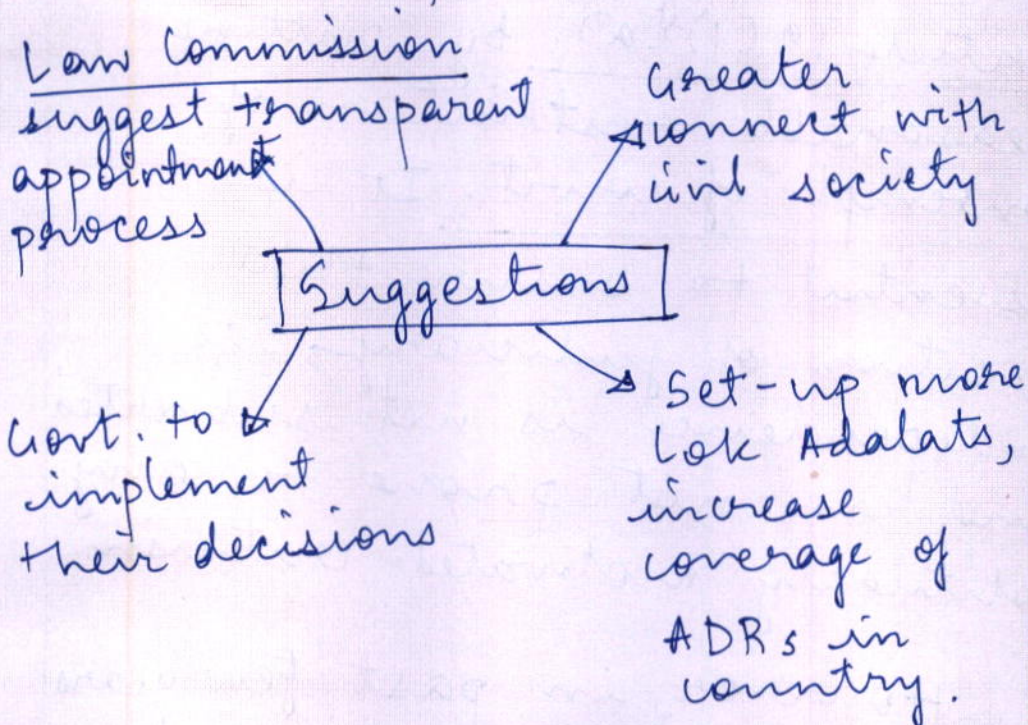 Law Commission
suggest transparent
appointment
process
Greater
connect with
civil society
Suggestions
Govt. to
implement
their decisions
Set-up more
Lok Adalats,
increase
coverage of
ADRs in
country.